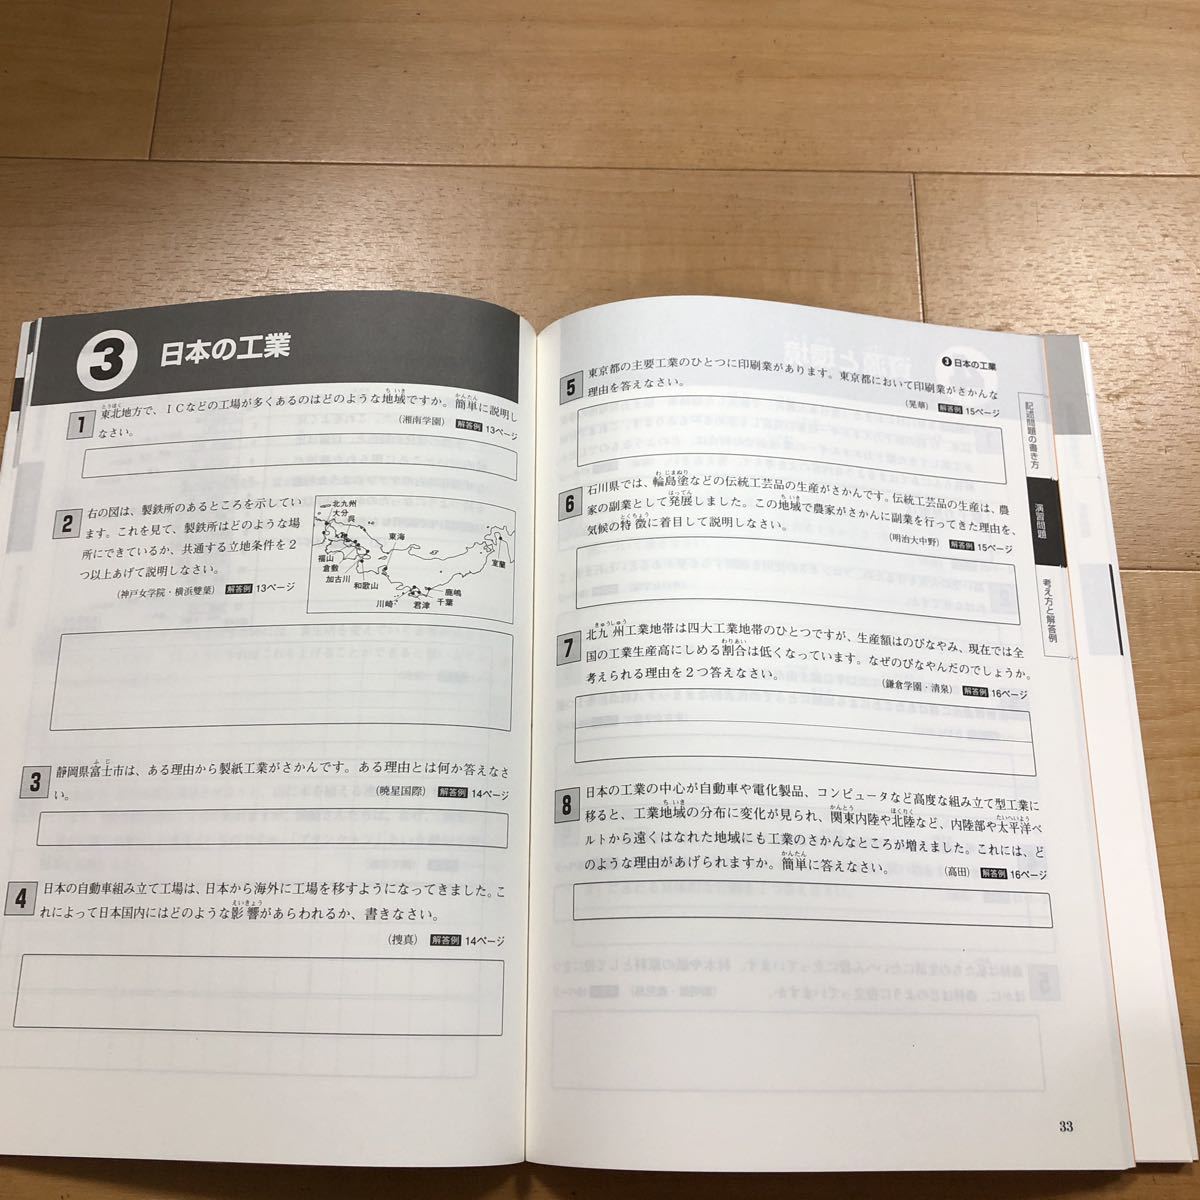 3 日本の工業
1 東北地方で、ICなどの工場が多くあるのはどのような地域ですか。簡単に説明し
なさい。
(湘南学園) 解答例 13ページ
2 右の図は、製鉄所のあるところを示してい
ます。これを見て、製鉄所はどのような場
所にできているか、共通する立地条件を2
つ以上あげて説明しなさい。
(神戸女学院・横浜雙葉) 解答例 13ページ
北九州
大分
呉
東海
室蘭
福山
倉敷
加古川
和歌山
鹿嶋
川崎
君津
千葉
3 静岡県富士市は、ある理由から製紙工業がさかんです。ある理由とは何か答えなさ
い。
(暁星国際) 解答例 14ページ
4 日本の自動車組み立て工場は、日本から海外に工場を移すようになってきました。こ
れによって日本国内にはどのような影響があらわれるか、書きなさい。
(捜真) 解答例 14ページ
3 日本の工業
5 東京都の主要工業のひとつに印刷業があります。東京都において印刷業がさかんな
理由を答えなさい。
(晃華) 解答例 15ページ
6 石川県では、輪島塗などの伝統工芸品の生産がさかんです。伝統工芸品の生産は、農
家の副業として発展しました。この地域で農家がさかんに副業を行ってきた理由を、
気候の特徴に着目して説明しなさい。
(明治大中野) 解答例 15ページ
7 北九州工業地帯は四大工業地帯のひとつですが、生産額はのびなやみ、現在では全
国の工業生産高にしめる割合は低くなっています。なぜのびなやんだのでしょうか。
考えられる理由を2つ答えなさい。
(鎌倉学園・清泉) 解答例 16ページ
8 日本の工業の中心が自動車や電化製品、コンピュータなど高度な組み立て型工業に
移ると、工業地域の分布に変化が見られ、関東内陸や北陸など、内陸部や太平洋ベ
ルトから遠くはなれた地域にも工業のさかんなところが増えました。これには、ど
のような理由があげられますか。簡単に答えなさい。
(高田) 解答例 16ページ
記述問題の書き方
演習問題
考え方と解答例
33